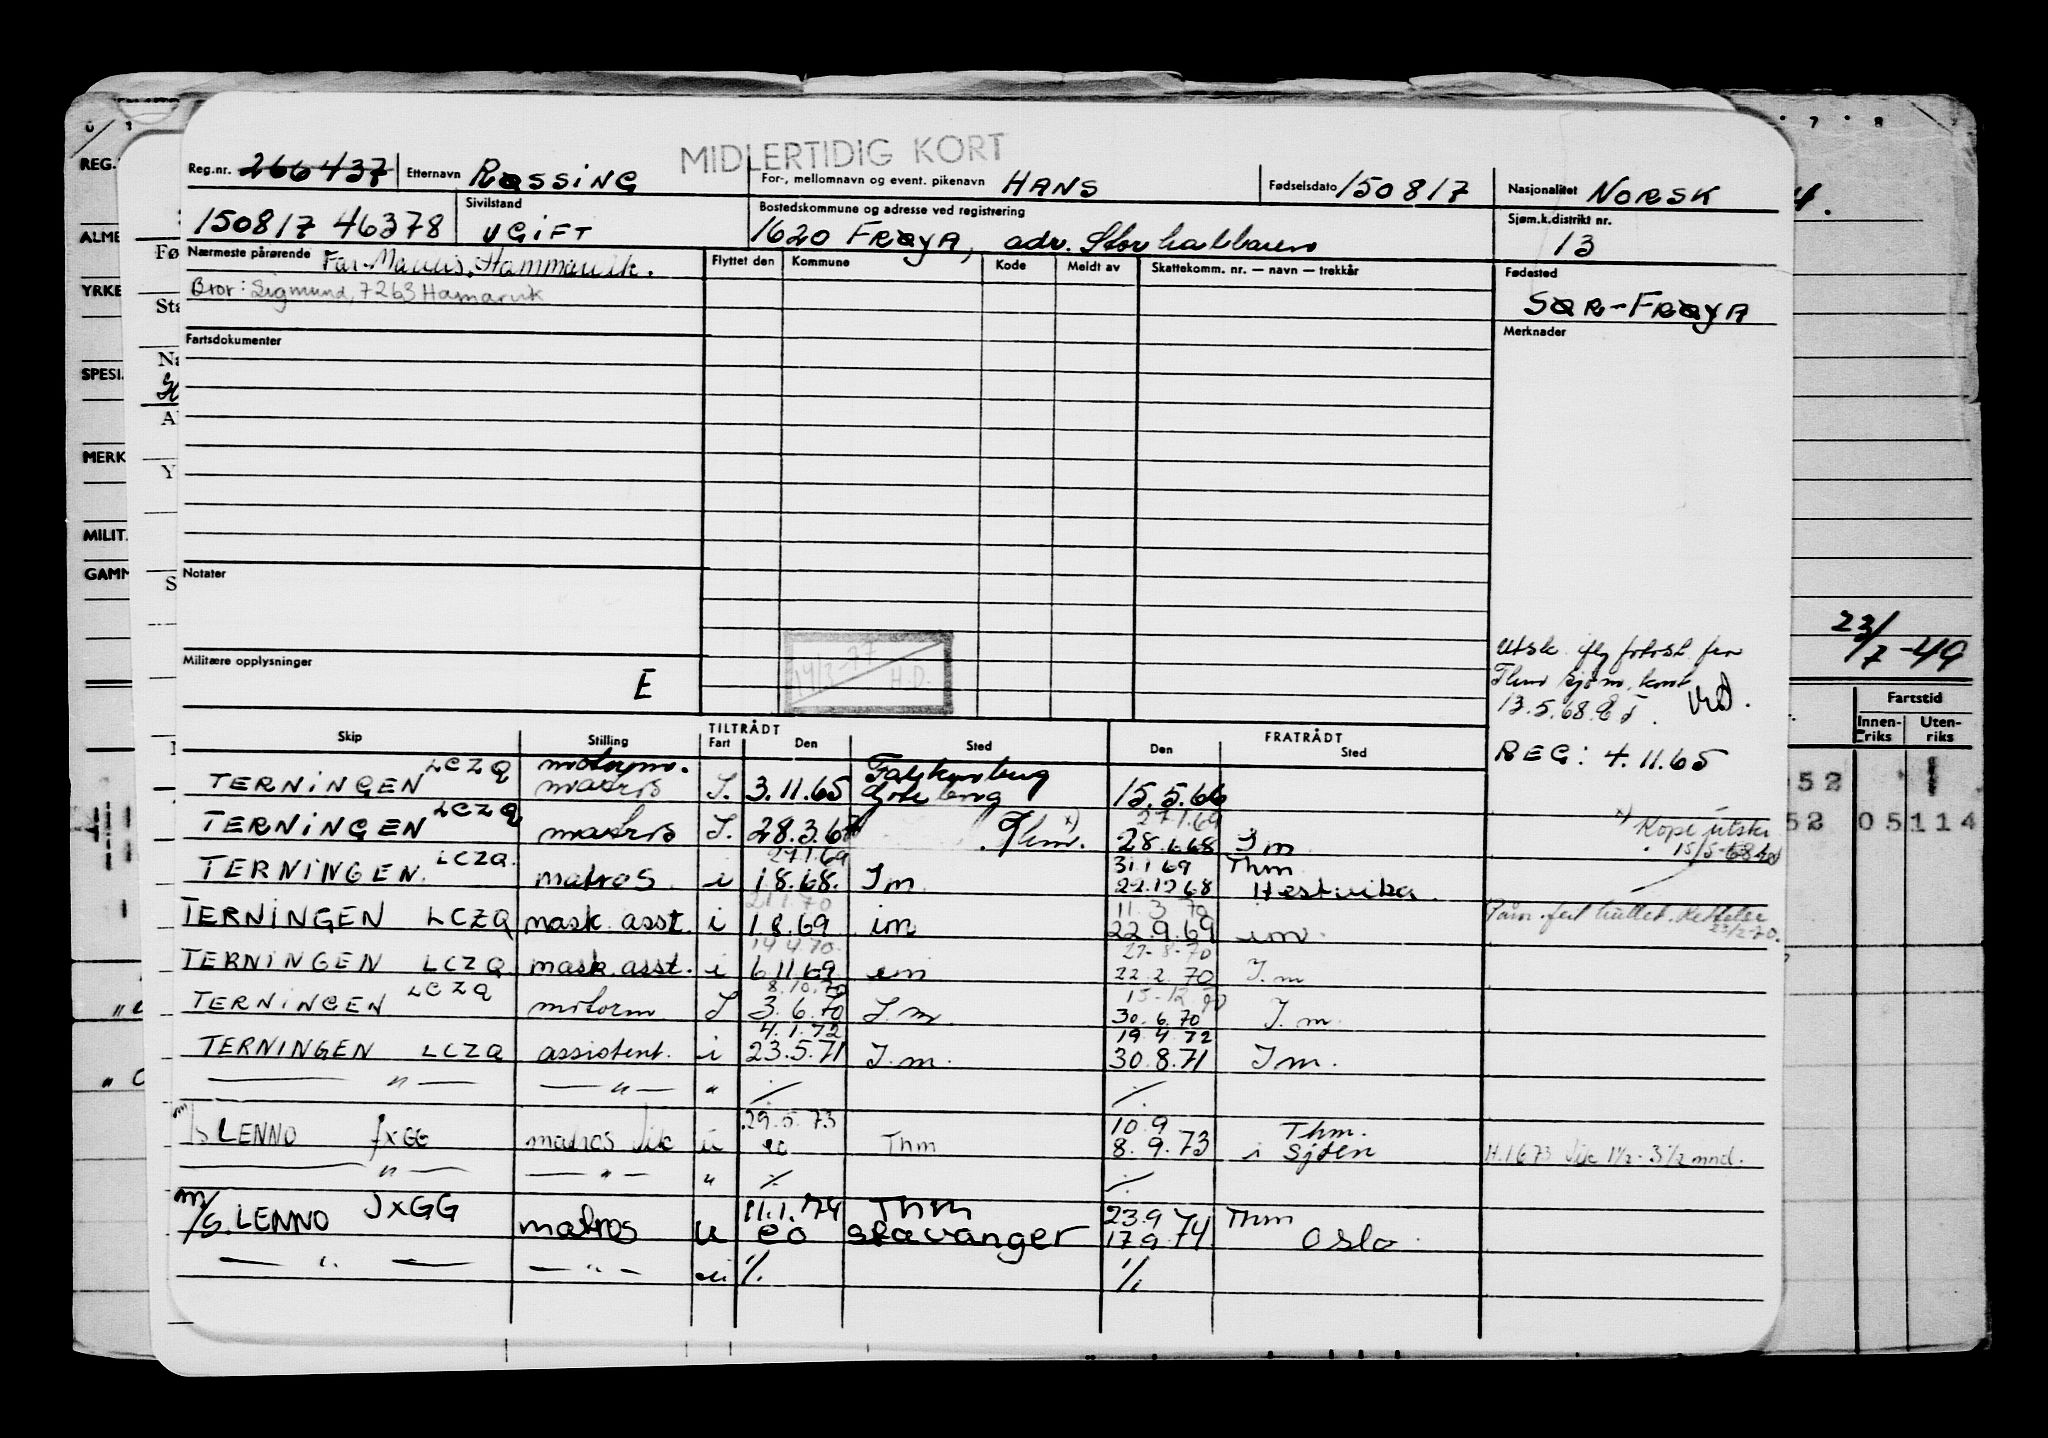 MIDLERTIDIG KORT
Reg.nr. 266437 Etternavn RØSSING For-, mellomnavn og event. pikenavn HANS Fødselsdato 150817 Nasjonalitet NORSK
150817 46378 Sivilstand UGIFT Bostedskommune og adresse ved registrering 1620 FRØYA, adr. Storhallaren Sjøm.k.distrikt nr. 13
Nærmeste pårørende Far: Hammarvik.
Bror: Sigmund, 7263 Hamarvik
Flyttet den Kommune Kode Meldt av Skattekomm. nr. — navn — trekkår
Fødested
SØR-FRØYA
Fartsdokumenter
Merknader
Notater
Militære opplysninger E
14/3-77 H.D.
13.5.68
REG: 4.11.65
23/7-49
Fartstid
Innenriks Utenriks
52
52 05114
Skip Stilling TILTRÅDT Fart Den Sted FRATRÅDT Den Sted
motorm. Falkenberg
TERNINGEN LCZQ matros I. 3.11.65 Göteborg 15.5.66
27.1.69
TERNINGEN LCZQ matros I. 28.3.68 Thm. x) 28.6.68 I m
x) Kopi utskr. 15/5-68
27.1.69 31.1.69 Thm
TERNINGEN LCZQ. matros i 1.8.68. I m 22.12.68 Hestvika.
21.1.70 11.3.70
TERNINGEN LCZQ mask. asst. i 1.8.69 im 22.9.69 im.
23/2-70.
14.4.70 27-8-70
TERNINGEN LCZQ mask. asst. i 6.11.69 im 22.2.70 I.m
8.10.70 15-12-70
TERNINGEN LCZQ motorm I 3.6.70 I.m. 30.6.70 I.m.
4.1.72 19.4.72
TERNINGEN LCZQ assistent. i 23.5.71 I.m. 30.8.71 I m.
— " — — " — " ./. ./.
29.5.73 10.9 Thm.
m/s LENNO JXGG matros Vik u eo Thm 8.9.73 i Sjøen
H.1673 Vik 1½-3½ mnd.
— " — — " — " ./. ./.
11.1.74 Thm 23.9 Thm
m/s. LENNO JXGG matros u eo stavanger 17.9.74 Oslo
— " — — " — ./. ./.
REG.
ALME
YRKE
SPESI
MERK
MILIT.
GAMM